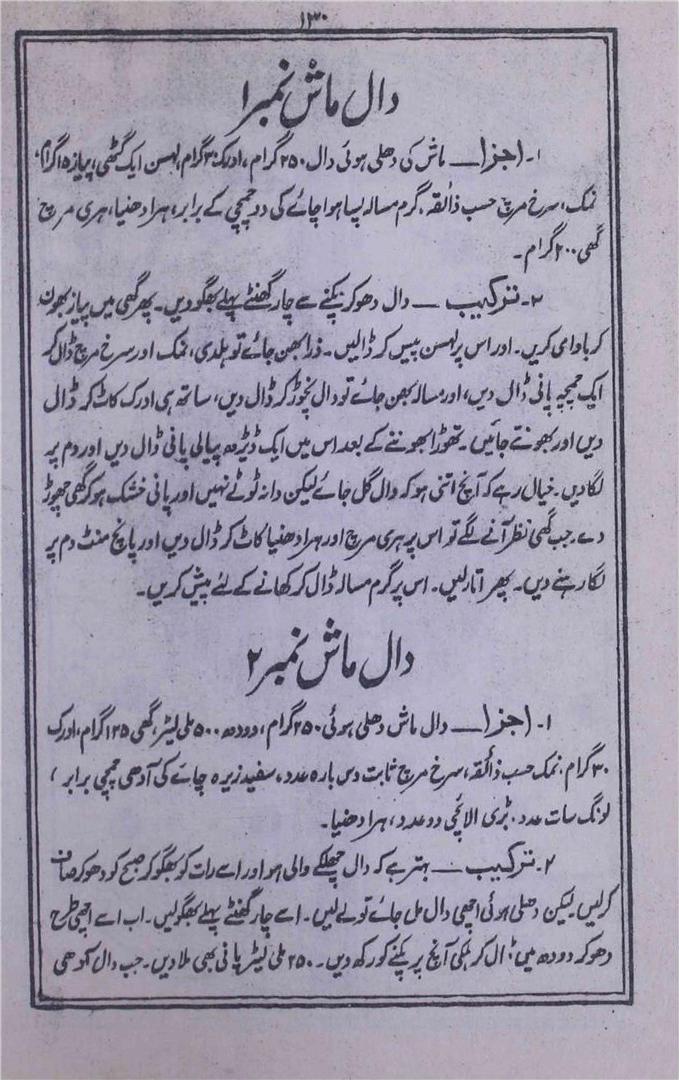 ۱۳۰
دال ماش نمبر ۱
۱۔ اجزا — ماش کی دھلی ہوئی دال ۲۵۰ گرام، ادرک ۳۰ گرام، لہسن ایک گٹھی، پیاز ۱۵ گرام،
نمک، سرخ مرچ حسب ذائقہ، گرم مسالہ پسا ہوا چائے کی دو چمچی کے برابر، ہرا دھنیا، ہری مرچ
گھی ۲۰۰ گرام۔
۲۔ ترکیب — دال دھو کر پکنے سے چار گھنٹے پہلے بھگو دیں۔ پھر گھی میں پیاز بھون
کر بادامی کریں۔ اور اس پر لہسن پیس کر ڈالیں۔ ذرا بھن جائے تو ہلدی، نمک اور سرخ مرچ ڈال کر
ایک چمچہ پانی ڈال دیں، اور مسالہ بھن جائے تو دال نچوڑ کر ڈال دیں، ساتھ ہی ادرک کاٹ کر ڈال
دیں اور بھونتے جائیں۔ تھوڑا بھوننے کے بعد اس میں ایک ڈیڑھ پیالی پانی ڈال دیں اور دم پر
لگا دیں۔ خیال رہے کہ آنچ اتنی ہو کہ دال گل جائے لیکن دانہ ٹوٹے نہیں اور پانی خشک ہو کر گھی چھوڑ
دے۔ جب گھی نظر آنے لگے تو اس پر ہری مرچ اور ہرا دھنیا کاٹ کر ڈال دیں اور پانچ منٹ دم پر
لگا رہنے دیں۔ پھر اتار لیں۔ اس پر گرم مسالہ ڈال کر کھانے کے لئے پیش کریں۔
دال ماش نمبر ۲
۱۔ اجزا — دال ماش دھلی ہوئی ۲۵۰ گرام، دودھ ۵۰۰ ملی لیٹر، گھی ۱۲۵ گرام، ادرک
۳۰ گرام، نمک حسب ذائقہ، سرخ مرچ ثابت دس بارہ عدد، سفید زیرہ چائے کی آدھی چمچی برابر،
لونگ سات عدد، بڑی الائچی دو عدد، ہرا دھنیا۔
۲۔ ترکیب — بہتر ہے کہ دال چھلکے والی ہو اور اسے رات کو بھگو کر صبح کو دھو کر صاف
کر لیں۔ لیکن دھلی ہوئی اچھی دال مل جائے تو لے لیں۔ اسے چار گھنٹے پہلے بھگو لیں۔ اب اسے اچھی طرح
دھو کر دودھ میں ڈال کر ہلکی آنچ پر پکنے کو رکھ دیں۔ ۲۵۰ ملی لیٹر پانی بھی ملا دیں۔ جب دال آدھی